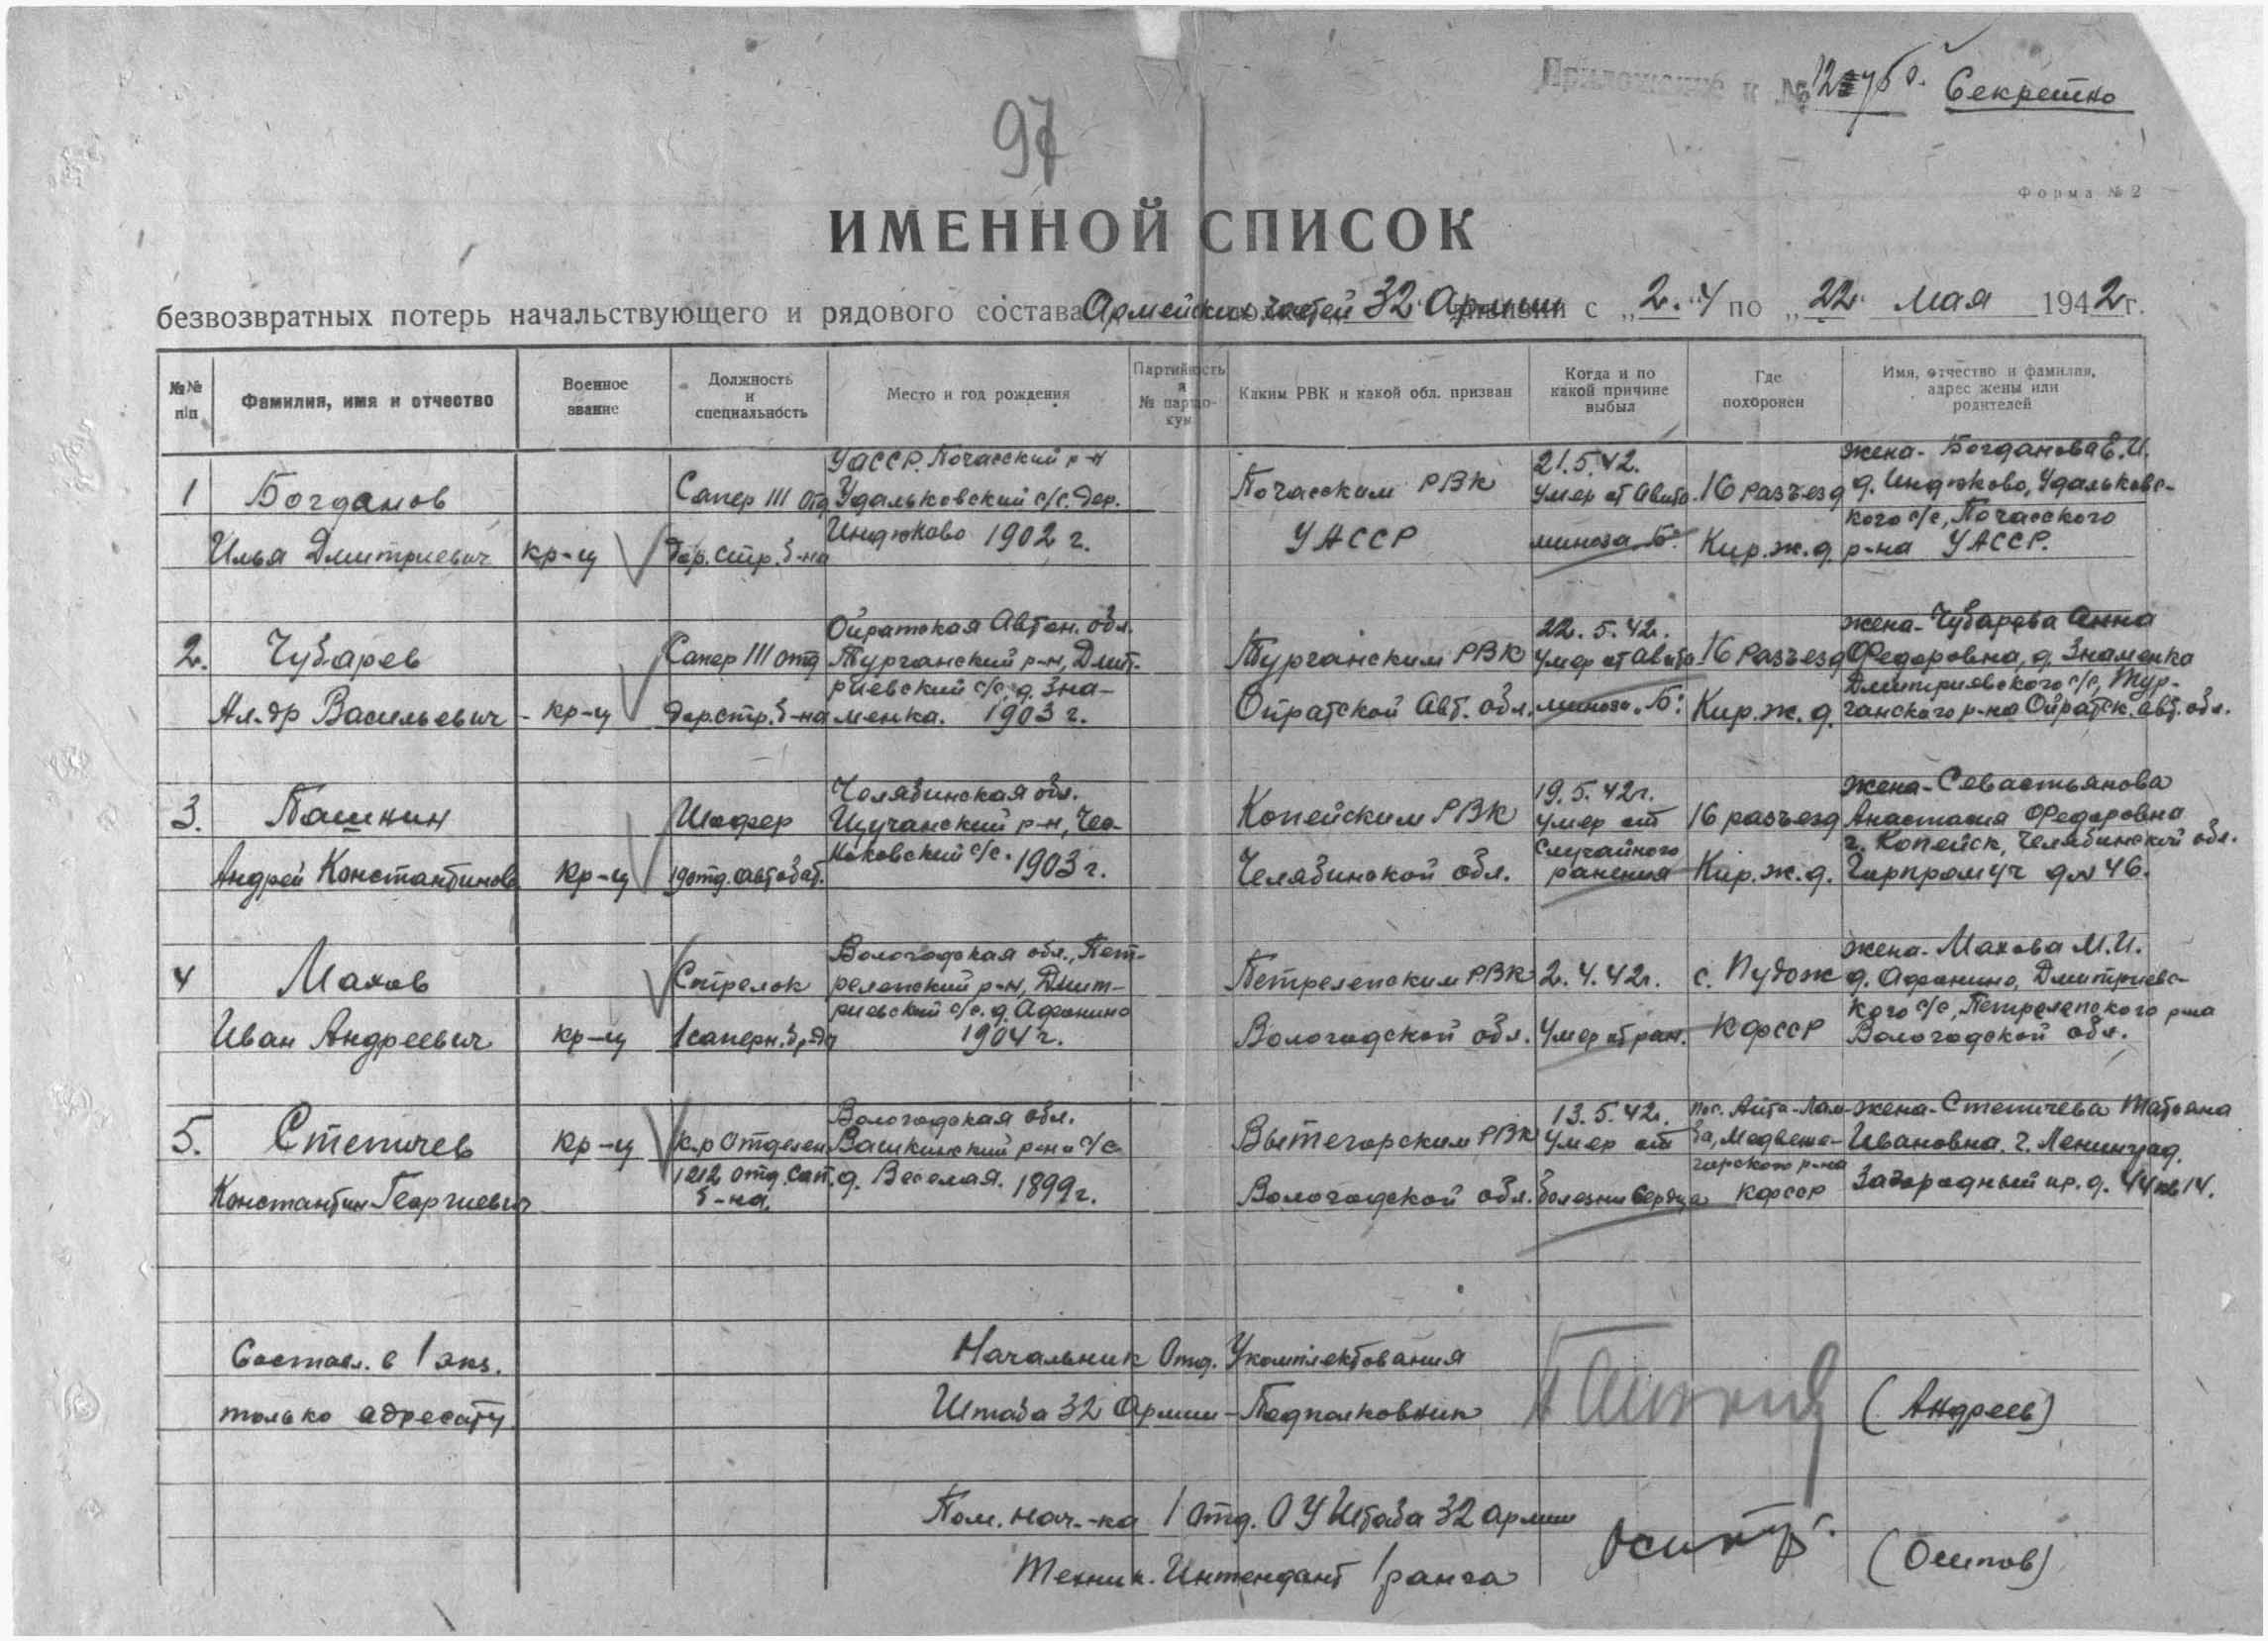 Приложение к №
Секретно
97
Форма №2
ИМЕННОЙ СПИСОК
безвозвратных потерь начальствующего и рядового состава Армейских частей 32 Армии с „2.“ 4 по „22“ мая 1942 г.
№№ п/п
Фамилия, имя и отчество
Военное звание
Должность и специальность
Место и год рождения
Партийность и № партдокум
Каким РВК и какой обл. призван
Когда и по какой причине выбыл
Где похоронен
Имя, отчество и фамилия, адрес жены или родителей
1
Богданов
Илья Дмитриевич
кр-ц
Сапер 111 отд
дор. стр. б-на
УАССР. Почасский р-н
Удальковский с/с. дер.
Индюково 1902 г.
Почасским РВК
УАССР
21.5.42.
Умер от авита-
миноза „Б“
16 разъезд
Кир. ж. д.
жена - Богданова Е.И.
д. Индюково, Удальковс-
кого с/с, Почасского
р-на УАССР.
2.
Чубарев
Ал-др Васильевич
- кр-ц
Сапер 111 отд
дор. стр. б-на
Ойратская Автон. обл.
Турганский р-н, Дмит-
риевский с/с, д. Зна-
менка. 1903 г.
Турганским РВК
Ойратской Авт. обл.
22. 5. 42.
Умер от авита-
миноза „Б“
16 разъезд
Кир. ж. д.
жена - Чубарева Анна
Федоровна, д. Знаменка
Дмитриевского с/с, Тур-
ганского р-на Ойратск. авт. обл.
3.
Пашнин
Андрей Константинов
кр-ц
Шофер
19 отд. автобат.
Челябинская обл.
Щучанский р-н, Чес-
ноковский с/с. 1903 г.
Копейским РВК
Челябинской обл.
19. 5. 42 г.
умер от
случайного
ранения
16 разъезд
Кир. ж. д.
жена - Севастьянова
Анастасия Федоровна
г. Копейск, Челябинской обл.
Гирпромуч д. № 46.
4
Махов
Иван Андреевич
кр-ц
Стрелок
1 саперн. бр-да
Вологодская обл., Пет-
релепский р-н, Дмит-
риевский с/с. д. Афонино
1904 г.
Петрелепским РВК
Вологодской обл.
2. 4. 42 г.
Умер от ран.
с. Пудож
КФССР
жена - Махова М. И.
д. Афонино, Дмитриевс-
кого с/с, Петрелепского р-на
Вологодской обл.
5.
Степичев
Константин Георгиевич
кр-ц
к-р отделен
1212 отд. сап.
б-на.
Вологодская обл.
Вашкинский р-н с/с
д. Веселая. 1899 г.
Вытегорским РВК
Вологодской обл.
13. 5. 42 г.
Умер от
болезни сердца
пос. Айта-Лам-
ба, Медвеже-
горского р-на
КФССР
жена - Степичева Татьяна
Ивановна. г. Ленинград.
Загородный пр. д. 44 кв 14.
Составл. в 1 экз.
только адресату
Начальник Отд. Укомплектования
Штаба 32 Армии - Подполковник
(Андреев)
Пом. нач-ка 1 отд. ОУ Штаба 32 армии
Техник-Интендант 1 ранга
(Осипов)